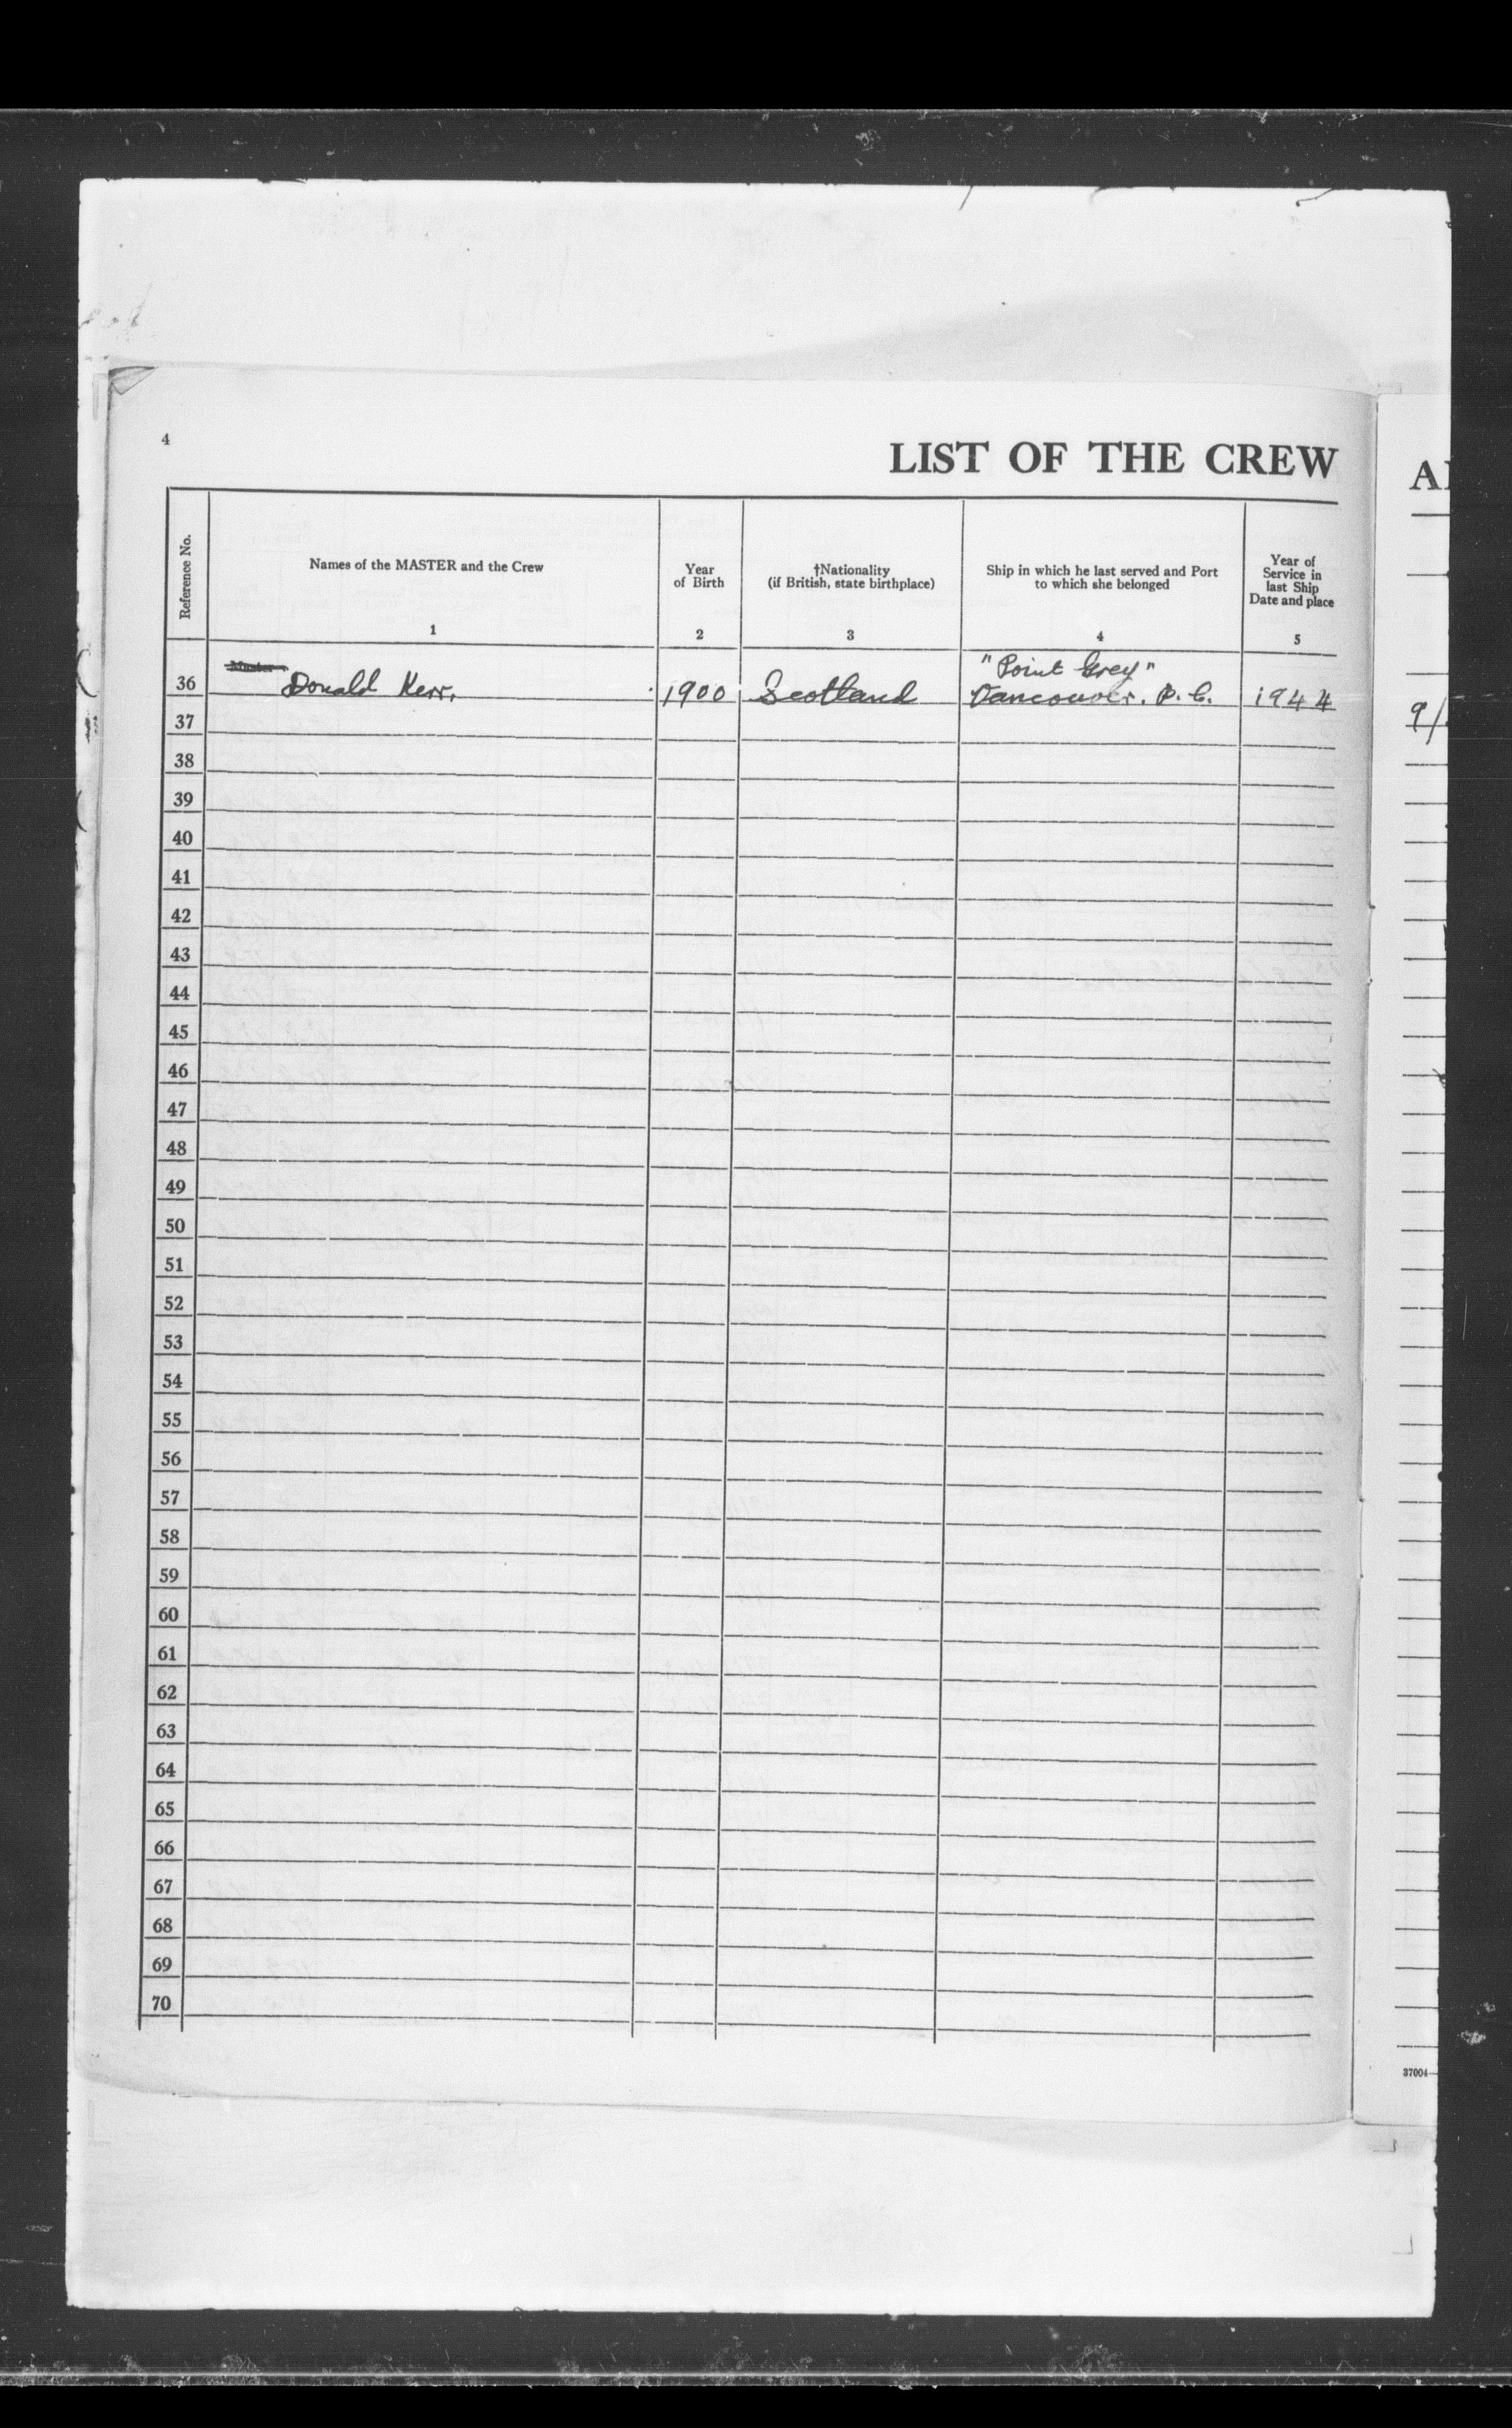 4
LIST OF THE CREW
Reference No.
Names of the MASTER and the Crew
1
Year
of Birth
2
†Nationality
(if British, state birthplace)
3
Ship in which he last served and Port
to which she belonged
4
Year of
Service in
last Ship
Date and place
5
Master
"Point Grey"
36 Donald Kerr. 1900 Scotland Vancouver. B.C. 1944
37
38
39
40
41
42
43
44
45
46
47
48
49
50
51
52
53
54
55
56
57
58
59
60
61
62
63
64
65
66
67
68
69
70
9/
37004